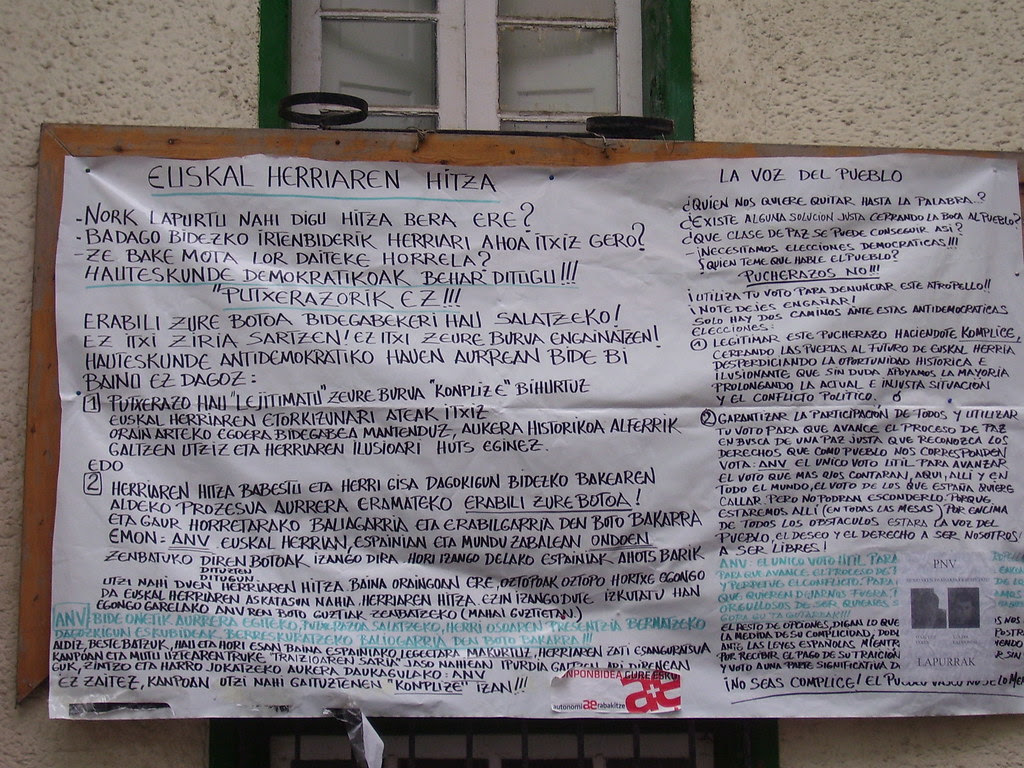 EUSKAL HERRIAREN HITZA
-NORK LAPURTU NAHI DIGU HITZA BERA ERE?
-BADAGO BIDEZKO IRTENBIDERIK HERRIARI AHOA ITXIZ GERO?
-ZE BAKE MOTA LOR DAITEKE HORRELA?
HAUTESKUNDE DEMOKRATIKOAK BEHAR DITUGU!!!
"PUTXERAZORIK EZ"!!!
ERABILI ZURE BOTOA BIDEGABEKERI HAU SALATZEKO!
EZ ITXI ZIRIA SARTZEN! EZ ITXI ZEURE BURUA ENGAINATZEN!
HAUTESKUNDE ANTIDEMOKRATIKO HAUEN AURREAN BIDE BI
BAINO EZ DAGOZ:
1 PUTXERAZO HAU "LEJITIMATU" ZEURE BURUA "KONPLIZE" BIHURTUZ
EUSKAL HERRIAREN ETORKIZUNARI ATEAK ITXIZ
ORAIN ARTEKO EGOERA BIDEGABEA MANTENDUZ, AUKERA HISTORIKOA ALFERRIK
GALTZEN UTZIZ ETA HERRIAREN ILUSIOARI HUTS EGINEZ.
EDO
2 HERRIAREN HITZA BABESTU ETA HERRI GISA DAGOKIGUN BIDEZKO BAKEAREN
ALDEKO PROZESUA AURRERA ERAMATEKO ERABILI ZURE BOTOA!
ETA GAUR HORRETARAKO BALIAGARRIA ETA ERABILGARRIA DEN BOTO BAKARRA
EMON: ANV EUSKAL HERRIAN, ESPAINIAN ETA MUNDU ZABALEAN ONDOEN
ZENBATUKO DIREN BOTOAK IZANGO DIRA HORI IZANGO DELAKO ESPAINIAK AHOTS BARIK
DITUZTEN
DITUGUN
UTZI NAHI DUEN HERRIAREN HITZA BAINA ORAINGOAN ERE, OZTOPOAK OZTOPO HORTXE EGONGO
DA EUSKAL HERRIAREN ASKATASUN NAHIA. HERRIAREN HITZA. EZIN IZANGO DUTE IZKUTATU HAN
EGONGO GARELAKO ANV REN BOTO GUZTIAK ZENBATZEKO (MAHAI GUZTIETAN)
ANV BIDE ONETIK AURRERA EGITEKO, PUTXERAZOA SALATZEKO, HERRI OSOAREN PRESENTZIA BERMATZEKO
DAGOZKIGUN ESKUBIDEAK BERRESKURATZEKO BALIOGARRIA DEN BOTO BAKARRA!!!
ALDIZ, BESTE BATZUK, HAU ETA HORI ESAN BAINA ESPAINIAKO LEGEETARA MAKURTUZ, HERRIAREN ZATI ESANGURATSUA
KANPOAN ETA MUTU UZTEAREN TRUKE "TRAIZIOAREN SARIA" JASO NAHIEAN IPURDIA
GUK, ZINTZO ETA HARRO JOKATZEKO AUKERA DAUKAGULAKO: ANV
EZ ZAITEZ, KANPOAN UTZI NAHI GAITUZTENEN "KONPLIZE" IZAN!!!
autonomi ae rabakitze
LA VOZ DEL PUEBLO
¿QUIEN NOS QUIERE QUITAR HASTA LA PALABRA..?
¿EXISTE ALGUNA SOLUCION JUSTA CERRANDO LA BOCA AL PUEBLO?
¿QUE CLASE DE PAZ SE PUEDE CONSEGUIR ASI?
-¡NECESITAMOS ELECCIONES DEMOCRATICAS!!!
¿QUIEN TEME QUE HABLE EL PUEBLO?
PUCHERAZOS NO!!!
¡UTILIZA TU VOTO PARA DENUNCIAR ESTE ATROPELLO!!
¡NO TE DEJES ENGAÑAR!
SOLO HAY DOS CAMINOS ANTE ESTAS ANTIDEMOCRATICAS
ELECCIONES:
1 LEGITIMAR ESTE PUCHERAZO HACIENDOTE KOMPLICE,
CERRANDO LAS PUERTAS AL FUTURO DE EUSKAL HERRIA
DESPERDICIANDO LA OPORTUNIDAD HISTORICA E
ILUSIONANTE QUE SIN DUDA APOYAMOS LA MAYORIA
PROLONGANDO LA ACTUAL E INJUSTA SITUACION
Y EL CONFLICTO POLITICO. ó
2 GARANTIZAR LA PARTICIPACIÓN DE TODOS Y UTILIZAR
TU VOTO PARA QUE AVANCE EL PROCESO DE PAZ
EN BUSCA DE UNA PAZ JUSTA QUE RECONOZCA LOS
DERECHOS QUE COMO PUEBLO NOS CORRESPONDEN
VOTA: ANV EL UNICO VOTO UTIL PARA AVANZAR
EL VOTO QUE MAS OJOS CONTARAN, AQUI, ALLI Y EN
TODO EL MUNDO, EL VOTO DE LOS QUE ESPAÑA QUIERE
CALLAR PERO NO PODRAN ESCONDERLO PORQUE
ESTAREMOS ALLI (EN TODAS LAS MESAS) POR ENCIMA
DE TODOS LOS OBSTACULOS ESTARA LA VOZ DEL
PUEBLO, EL DESEO Y EL DERECHO A SER NOSOTROS/
A SER LIBRES!
ANV: EL UNICO VOTO UTIL PARA
PARA QUE AVANCE EL PROCESO DE
Y PERPETUE EL CONFLICTO. PARA
QUE QUIEREN DEJARNOS FUERA!
ORGULLOSOS DE SER QUIENES
EL RESTO DE OPCIONES, DIGAN LO QUE
LA MEDIDA DE SU COMPLICIDAD,
ANTE LAS LEYES ESPAÑOLAS,
POR RECIBIR EL PAGO DE SU TRAICIÓN
Y VOTO A UNA PARTE SIGNIFICATIVA
¡NO SEAS COMPLICE!
PNV
LAPURRAK